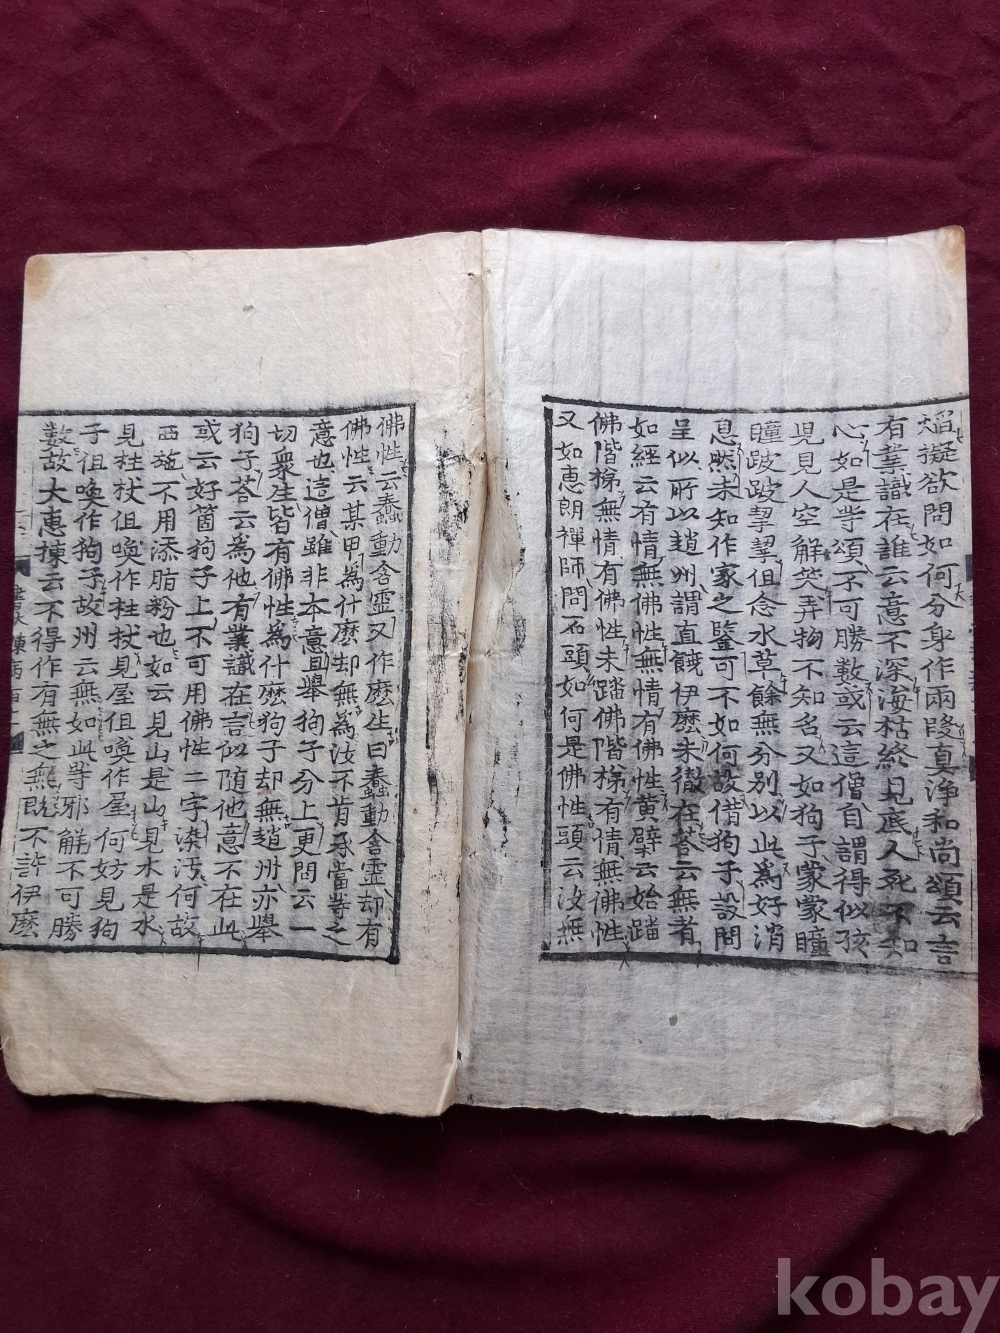 稻擬欲問如何分身作兩段真淨和尚頌云言
有業識在誰云意不深海枯終見底人死不知
心如是等頌不可勝數或云這僧自謂得似孩
児見人空解笑弄物不知名又如狗子蒙蒙瞳
瞳跛跛挈挈但念水草餘無分別以此為好消
息然未知作家之鑒可不如何故借狗子設問
呈似所以趙州謂直饒伊麽未徹在荅云無者
如經云有情無佛性無情有佛性黃蘗云始踏
佛階梯無情有佛性未踏佛階梯有情無佛性
又如惠朗禪師問石頭如何是佛性頭云汝無
佛性云蠢動含靈又作麽生曰蠢動含靈却有
佛性云某甲為什麽却無為汝不肯承當等之
意也這僧雖非本意且舉狗子分上更問云一
切衆生皆有佛性為什麽狗子却無趙州亦舉
狗子荅云為他有業識在言似随他意不在此
或云好箇狗子上不可用佛性二字染汚何故
西施不用添脂粉也如云見山是山見水是水
見柱杖但喚作柱杖見屋但喚作屋何妨見狗
子但喚作狗子故州云無如此等邪解不可勝
數故大惠揀云不得作有無之無既不許伊麽
kobay